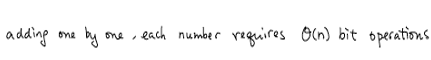 adding one by one, each number requires Θ(n) bit operations